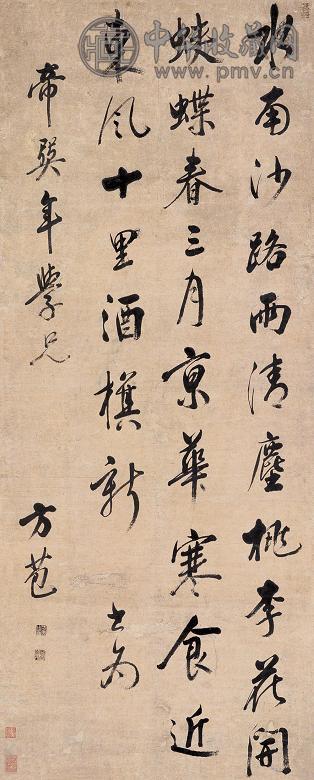 中华收藏网
www.pmv.cn
水南沙路雨清塵桃李花開
蛺蝶春三月京華寒食近
東風十里酒旗新 書為
帝巽年學兄
方苞